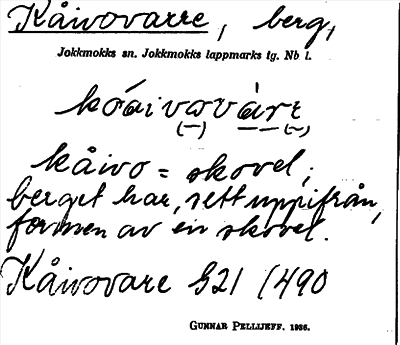 Kåivovarre, berg,
Jokkmokks sn. Jokkmokks lappmarks tg. Nb l.
kåivo = skovel;
berget har, sett uppifrån,
formen av en skovel.
Kåivovare G21 /490
GUNNAR PELLIJEFF. 1936.